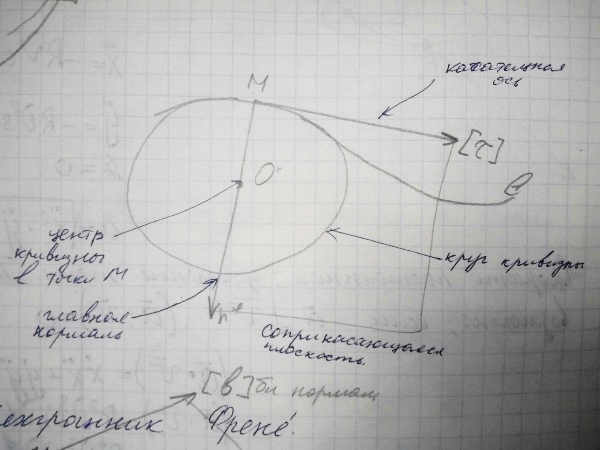 касательная
ось
M
[τ]
O
центр
кривизны
в точки M
круг кривизны
главная
нормаль
n
соприкасающаяся
плоскость
[в] би нормаль
ехгранник Френе.